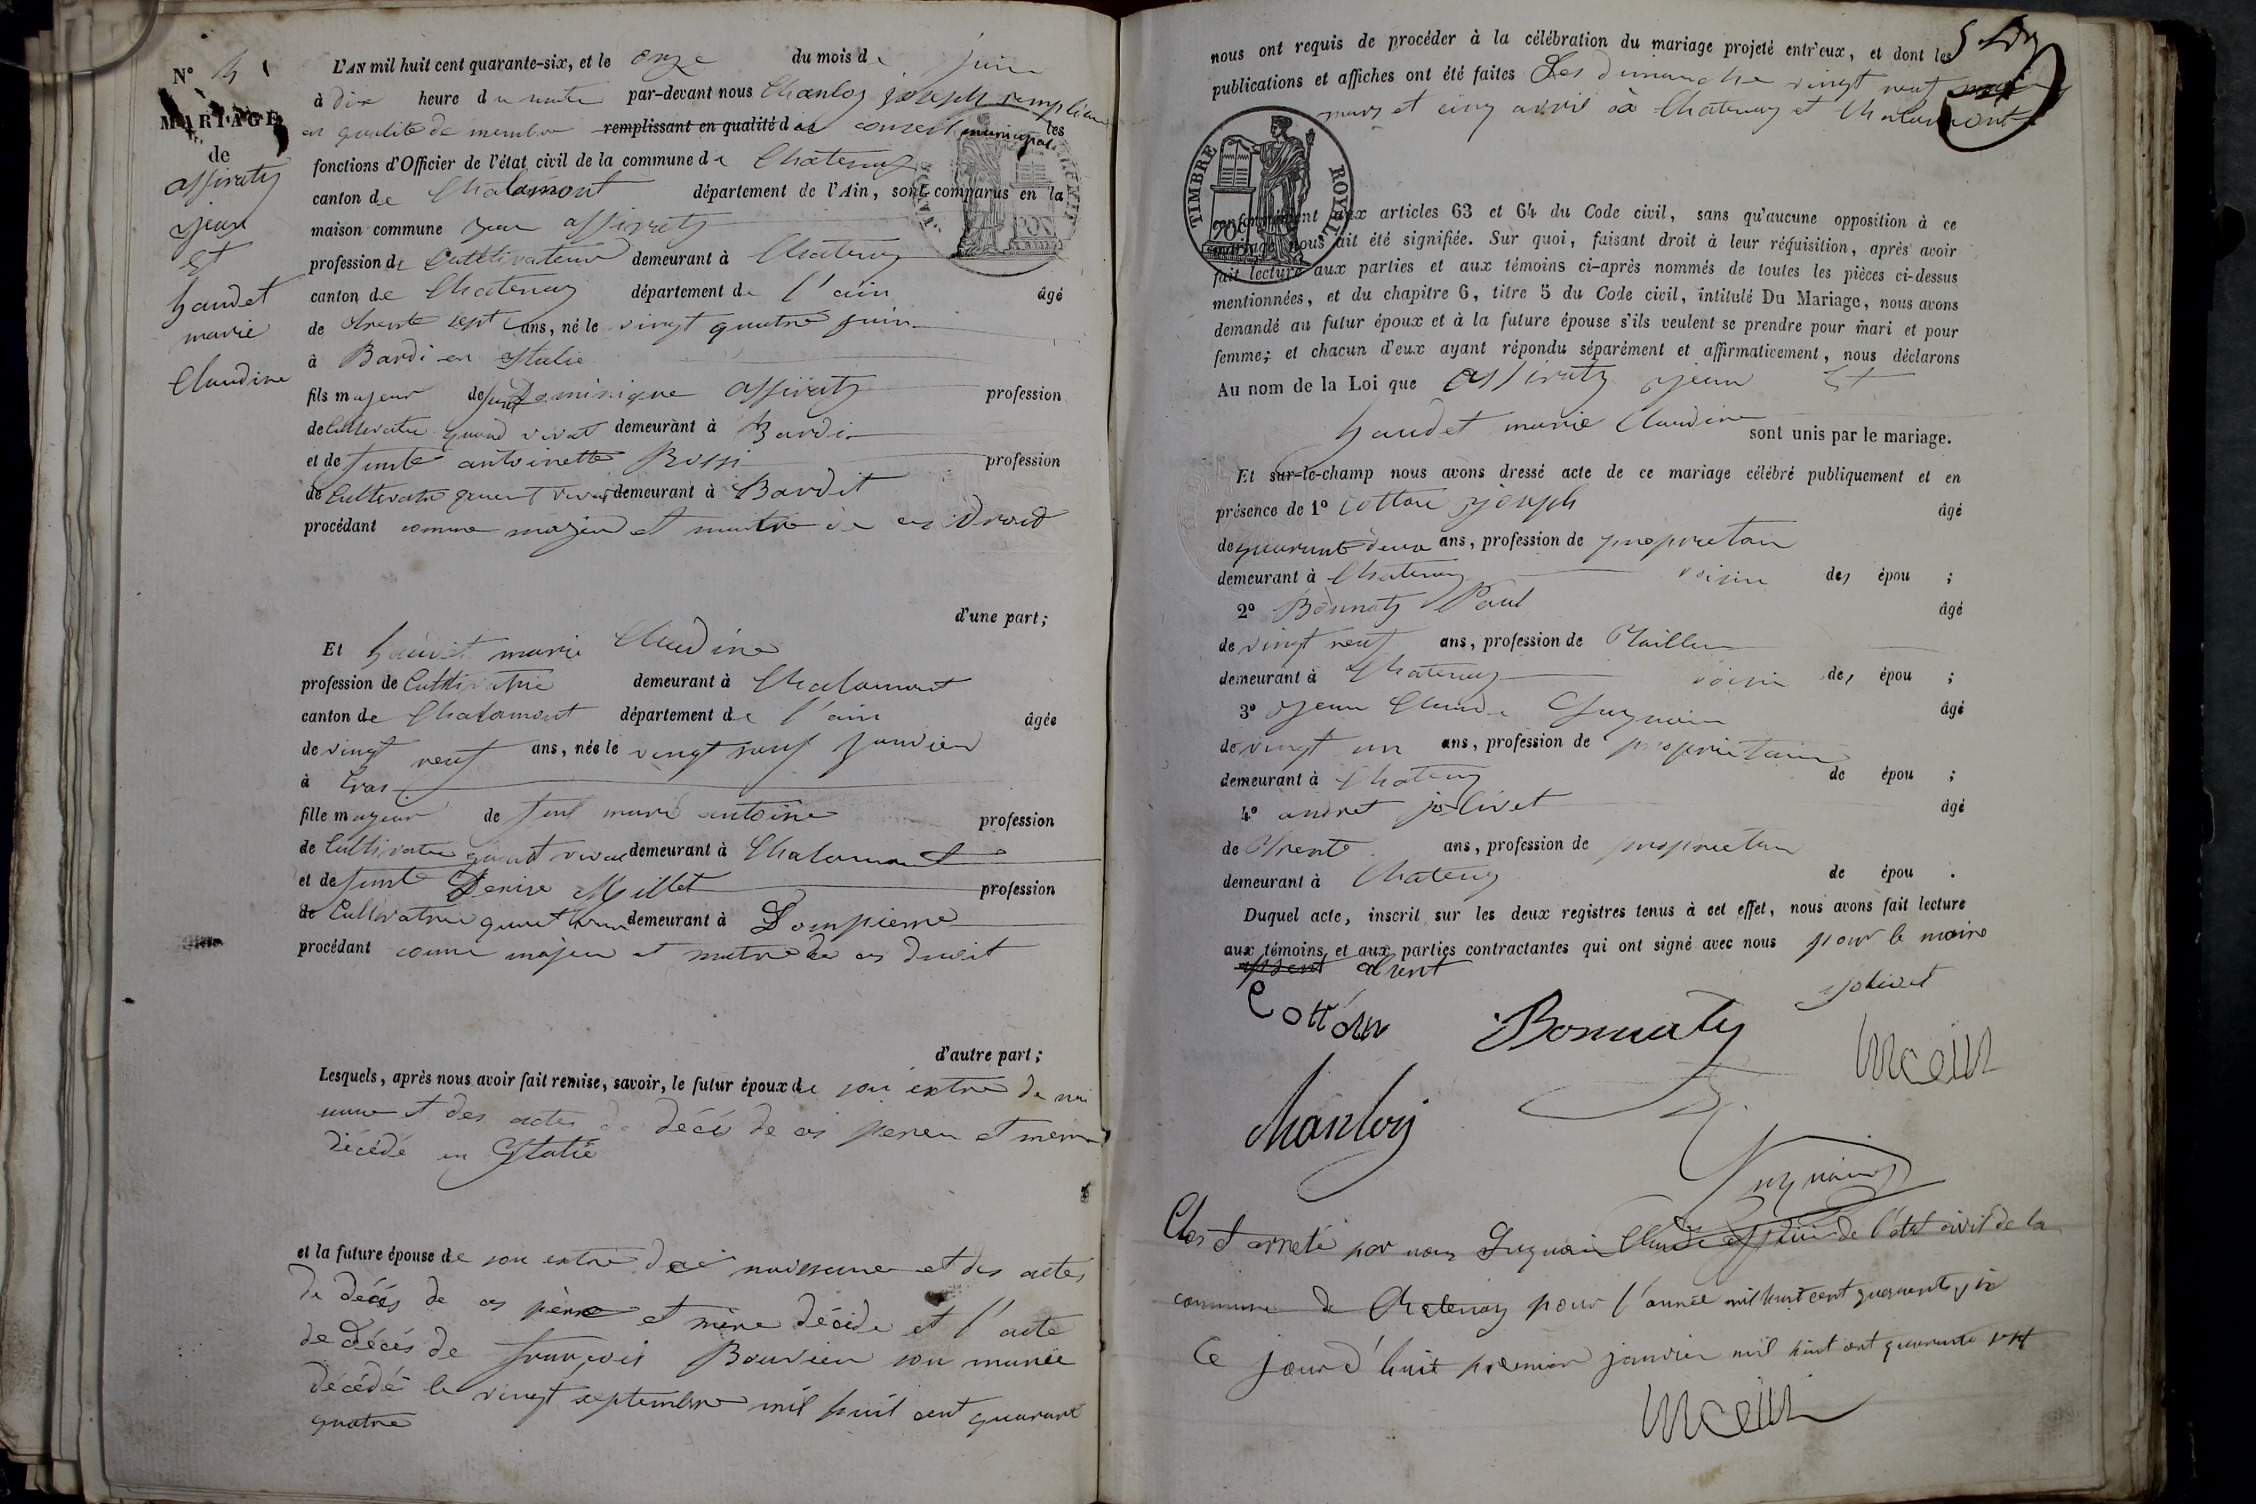 N° 4
MARIAGE
de
assiraty
jean
Et
handet
marie
Claudine
L'AN mil huit cent quarante-six, et le onze du mois de juin
à dix heure du matin par-devant nous Chanloy joseph remplissan
en qualité de membre remplissant en qualité d du conseil municipal les
fonctions d'Officier de l'état civil de la commune de Chatenay
canton de Chalamont département de l'Ain, sont comparus en la
maison commune jean assiraty
profession de Cultivateur demeurant à Chatenay
canton de Chatenay département de l'ain âgé
de trente sept ans, né le vingt quatre juin
à Bardi en Italie
fils majeur de feux Dominique assiraty profession
de Cultivateur quand vivat demeurant à Bardi
et de feunte antoinette Rossi profession
de Cultivatri demeurant à Bardit
procédant comme majeur et maitre de ces Droit
d'une part;
Et haudet marie Claudine
profession de Cultivatrie demeurant à Chalamont
canton de Chalamont département de l'ain âgée
de vingt neuf ans, née le vingt neuf janvier
à Cras
fille majeur de feut marie antoine profession
de Cultivateur quant vivai demeurant à Chalamont
et de feunte Denise Millet profession
de Cultivatrie quant demeurant à Dompierre
procédant comme majeu et maitre de ces droit
d'autre part;
Lesquels, après nous avoir fait remise, savoir, le futur époux de son extre de nai
sance et des actes de décé de ces perer et merer
décédé en Italie
et la future épouse de son extre de naissance et des actes
de décés de ces père et mère décéde et l'acte
de Décés de françois Bouvier son marie
décédé le vingt septembre mil huit cent quarant
quatre
nous ont requis de procéder à la célébration du mariage projeté entr'eux, et dont les
publications et affiches ont été faites Les dimanche vingt neuf
mars et cinq avril à Chatenay et Chalamont
TIMBRE ROYAL
conformément aux articles 63 et 64 du Code civil, sans qu'aucune opposition à ce
mariage nous ait été signifiée. Sur quoi, faisant droit à leur réquisition, après avoir
fait lecture aux parties et aux témoins ci-après nommés de toutes les pièces ci-dessus
mentionnées, et du chapitre 6, titre 5 du Code civil, intitulé Du Mariage, nous avons
demandé au futur époux et à la future épouse s'ils veulent se prendre pour mari et pour
femme; et chacun d'eux ayant répondu séparément et affirmativement, nous déclarons
Au nom de la Loi que assiraty jean Et
haudet marie Claudine sont unis par le mariage.
Et sur-le-champ nous avons dressé acte de ce mariage célébré publiquement et en
présence de 1° Cottare joseph âgé
de quarante deux ans, profession de proprietair
demeurant à Chatenay voisin des épou ;
2° Bonnaty Paul âgé
de vingt neuf ans, profession de Tailleur
demeurant à Chatenay voisin des épou ;
3° jean Claude Guynain âgé
de vingt un ans, profession de proprietaire
demeurant à Chateny de épou ;
4° andret jolivet âgé
de Trente ans, profession de proprietair
demeurant à Chateny de épou .
Duquel acte, inscrit sur les deux registres tenus à cet effet, nous avons fait lecture
aux témoins et aux parties contractantes qui ont signé avec nous pour le maire
absent
Jolivet
Cottare Bonnaty
Chanloy
Guynain
Clos et arreté par nous Guynain Claude officier de l'état civil de la
commune de Chatenay pour l'année mil huit cent quarante six
Ce jour d'huit premier janvier mil huit cent quarante sept